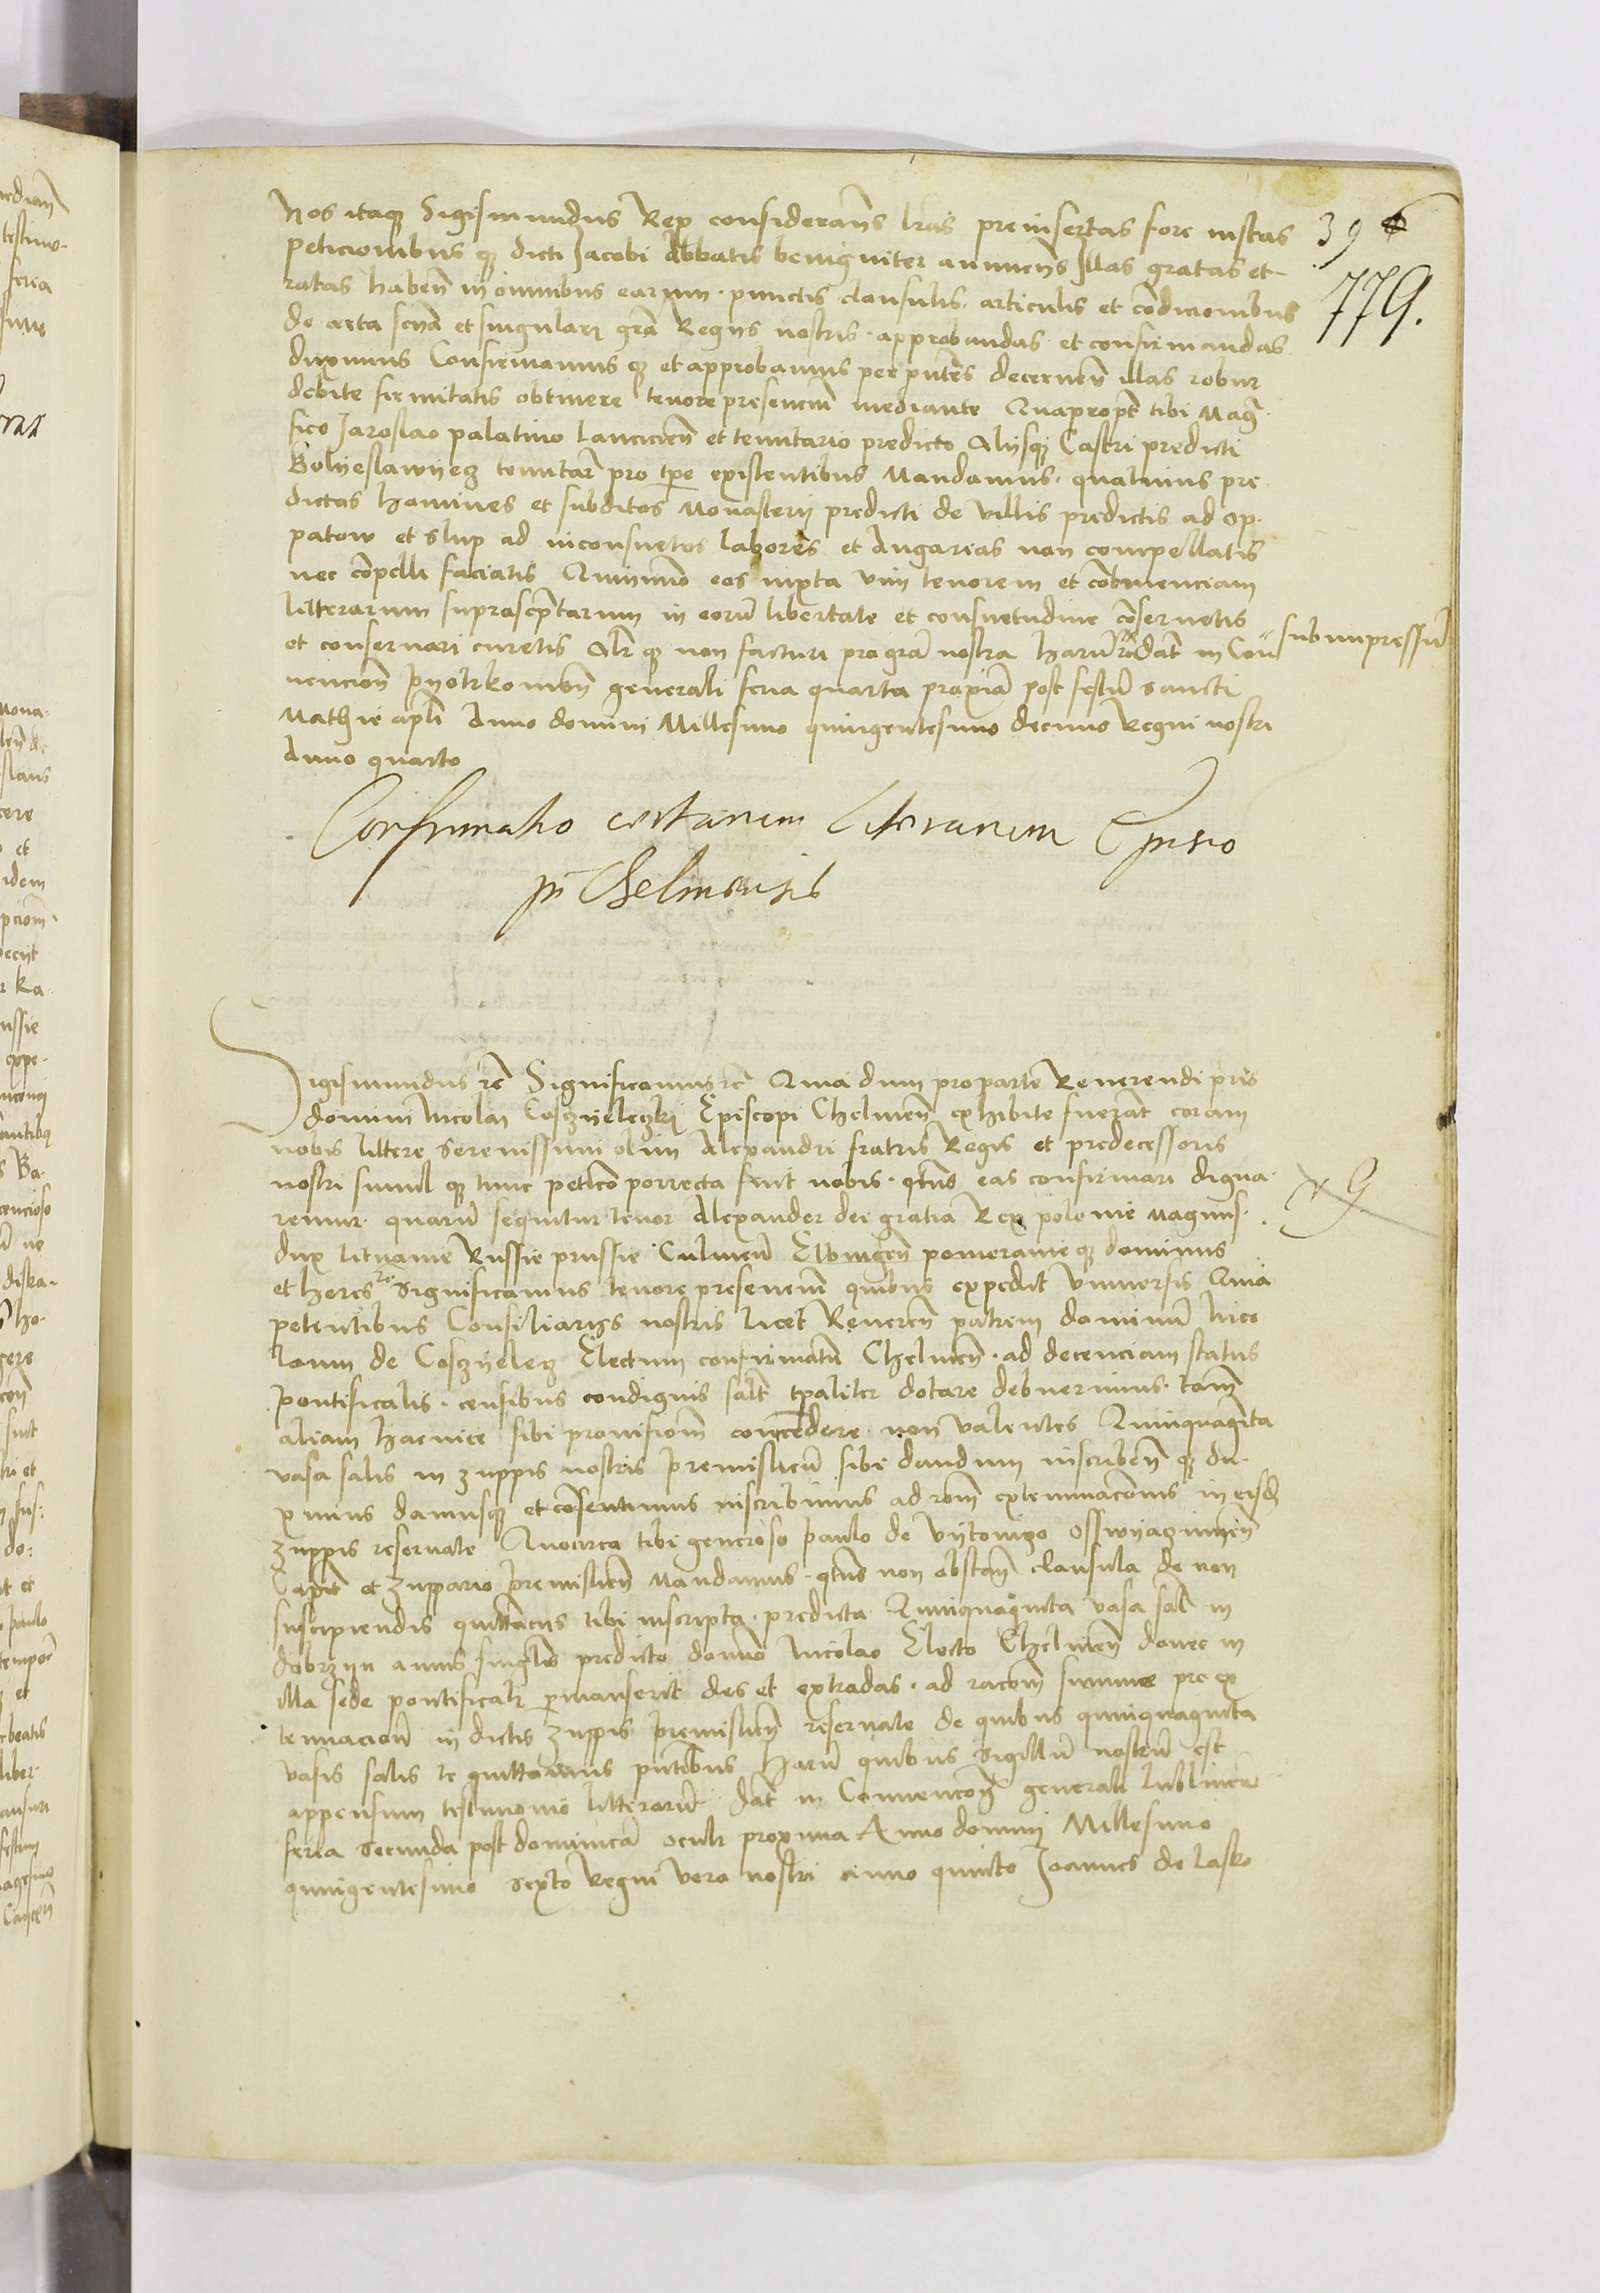 Nos itaque Sigismundus Rex considerans lras preinsertas fore iustas
peticionibus q3 dicti Jacobi Abbatis benigniter annuens Illas gratas et
ratas haben in omnibus earum punctis clausulis articulis et condicionibus
de certa sciencia et singulari gra Regiis nostris approbandas et confirmandas
duximus Confirmamus q3 et approbamus per pntes decernen illas robur
debite firmitatis obtinere tenore presencium mediante Quapropt tibi Mag
fico Jaroslao palatino lancicien et tenutario predicto Aliisq3 Castri predicti
Bolyeslawyecz tenutar pro tpe existentibus Mandamus quatinus pre
dictos homines et subditos Monasterii predicti de villis predictis ad Op
patow et Slup ad inconsuetos labores et Angarias non compellatis
nec compelli faciatis Quinimo eos iuxta vim tenorem et continenciam
litterarum suprascptarum in eoru libertate et consuetudine conservetis
et conservari curetis Alr q3 non facturi pro gra nostra Haru rc Dat in Con
sub impressu
vencion Pyotrkowien generali feria quarta proxia post festu Sancti
Mathie apli Anno domini Millesimo quingentesimo decimo Regni nostri
Anno quarto
39
779.
Confirmatio certarum Literarum Episco
pi Chelmensis
Sigismundus rc Significamus rc Quia dum pro parte Reverendi pris
domini Nicolai Coszyeleczki Episcopi Chelmen exhibite fuerat coram
nobis littere Serenissimi olim Alexandri fratris Regis et predecessoris
nostri simul q3 tunc peticio porrecta fuit nobis qtus eas confirmari digna
remur quaru sequitur tenor Alexander dei gratia Rex polonie Magnus
dux lituanie Russie prussie Culmen Elbingen pomeranie q3 dominus
et heres rc Significamus tenore presencium quibus expedit universis Quia
petentibus Consiliariis nostris licet Reveren patrem dominu Nico
laum de Coszyelecz Electum confirmatu Chelmen ad decenciam status
pontificalis censibus condignis salt tpaliter dotare debuerimus tam
aliam hac vice sibi provisiom concedere non valentes Quinquaginta
vasa salis in zuppis nostris Premislien sibi dandum inscriben q3 du
ximus damusq3 et consentimus inscribimus ad rom extenuaconis in eisd
zuppis reservate Quocirca tibi generoso Paulo de
Capit et zuppario Premislien Mandamus qtus non obstan clausula de non
suscipiendis quittanciis tibi inscripta predicta Quinquaginta vasa sal in
dobrzyn annis singlis predicto domno Nicolao Electo Chelmen donec in
illa sede pontificali pmanserit des et extradas ad racom summe pro ex
tenuacion in dictis zuppis Premislien reservate de quibus quinquaginta
vasis salis te quittamus pntibus Haru quibus Sigillu nostru est
appensum testimonio litterarum Dat in Convencon generali lublinen
feria Secunda post dominica oculi proxima Anno domini Millesimo
quingentesimo Sexto Regni vero nostri Anno quinto Joannes de lasko